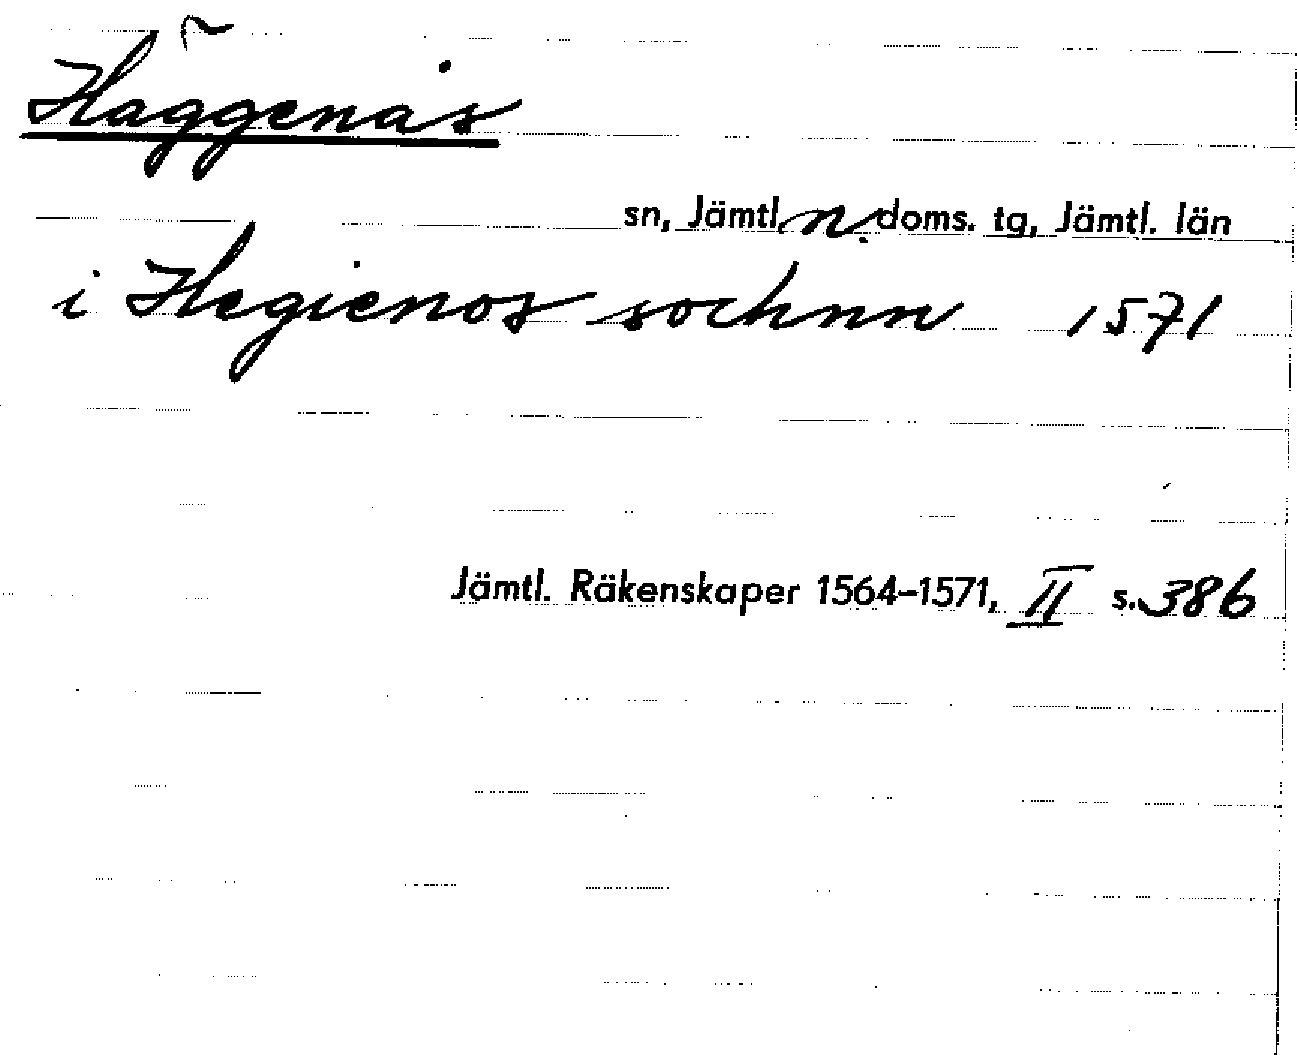 Häggenås
sn, Jämtl. n. doms. tg, Jämtl. län
i Hegienos sochnn 1571
Jämtl. Räkenskaper 1564-1571, II s. 386